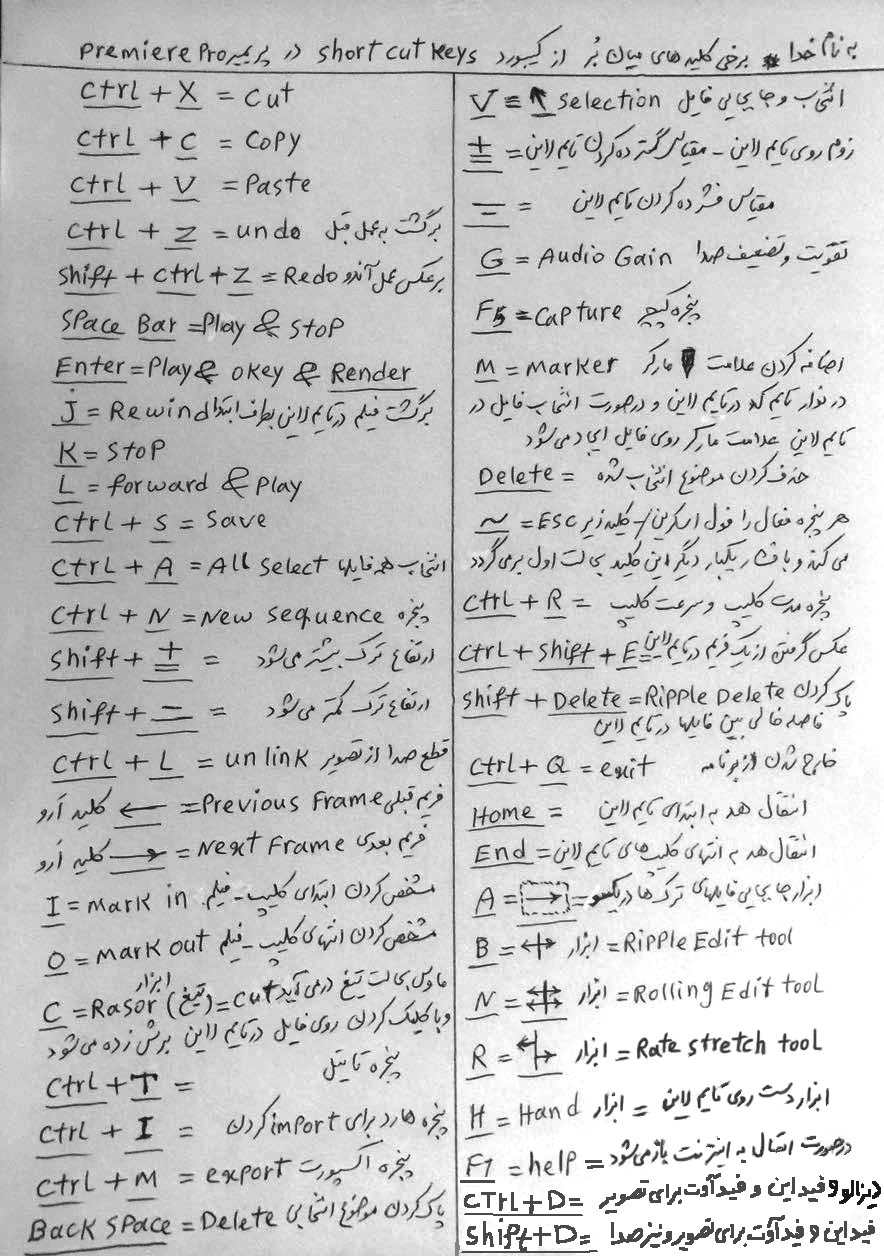 به نام خدا * برخی کلید های میان بُر از کیبورد short cut keys در پریمیر Premiere Pro
Ctrl + X = Cut
Ctrl + C = Copy
Ctrl + V = Paste
Ctrl + Z = undo برگشت به عمل قبل
Shift + Ctrl + Z = Redo برعکس عمل آندو
Space Bar = Play & Stop
Enter = Play & okey & Render
J = Rewind برگشت فیلم در تایم لاین بطرف ابتدا
K = Stop
L = forward & Play
Ctrl + S = Save
Ctrl + A = All Select انتخاب همه فایلها
Ctrl + N = New Sequence پنجره
Shift + + = ارتفاع ترک بیشتر می شود
Shift + - = ارتفاع ترک کمتر می شود
Ctrl + L = unlink قطع صدا از تصویر
کلید آرو ← = Previous Frame فریم قبلی
کلید آرو → = Next Frame فریم بعدی
I = mark in مشخص کردن ابتدای کلیپ - فیلم
O = mark out مشخص کردن انتهای کلیپ - فیلم
C = Rasor (تیغ) = Cut ابزار ماوس بحالت تیغ درمی آید
و با کلیک کردن روی فایل در تایم لاین برش زده می شود
Ctrl + T = پنجره تایتل
Ctrl + I = پنجره هارد برای import کردن
Ctrl + M = export پنجره اکسپورت
Back Space = Delete پاک کردن موضوع انتخابی
V = ↑ selection انتخاب و جابجایی فایل
+ = زوم روی تایم لاین - مقیاس گسترده کردن تایم لاین
- = مقیاس فشرده کردن تایم لاین
G = Audio Gain تقویت و تضعیف صدا
F5 = Capture پنجره کپچر
M = Marker اضافه کردن علامت مارکر
در نوار تایم کد در تایم لاین و درصورت انتخاب فایل در
تایم لاین علامت مارکر روی فایل ایجاد می شود
Delete = حذف کردن موضوع انتخاب شده
~ = ESC هر پنجره فعال را فول اسکرین / کلید زیر
می کند و با فشار یکبار دیگر این کلید بحالت اول برمی گردد
Ctrl + R = پنجره مدت کلیپ و سرعت کلیپ
Ctrl + Shift + E عکس گرفتن از یک فریم در تایم لاین
Shift + Delete = Ripple Delete پاک کردن
فاصله خالی بین فایلها در تایم لاین
Ctrl + Q = exit خارج شدن از برنامه
Home = انتقال هد به ابتدای تایم لاین
End = انتقال هد به انتهای کلیپ های تایم لاین
A = → = ابزار جابجایی فایلهای ترک ها در یکسو
B = ↔ ابزار = Ripple Edit tool
N = ابزار = Rolling Edit tool
R = ابزار = Rate stretch tool
H = Hand ابزار = ابزار دست روی تایم لاین
F1 = help = درصورت اتصال به اینترنت باز می شود
CTrl + D = دیزالو و فید این و فید آوت برای تصویر
Shift + D = فید این و فید آوت برای تصویر و نیز صدا